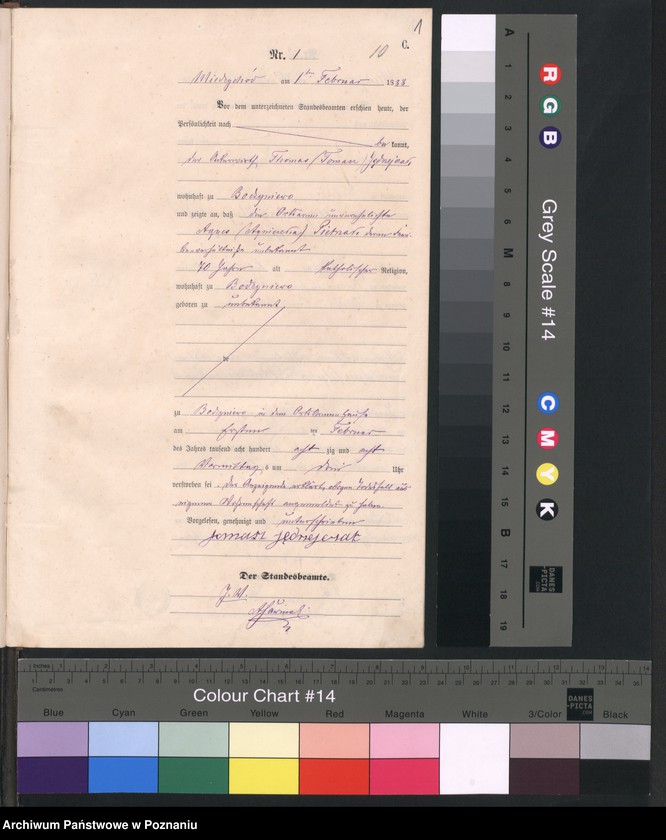 1
C.
Nr. 1
10
am 1ten Februar 1888
Vor dem unterzeichneten Standesbeamten erschien heute, der
Persönlichkeit nach
be kannt,
der Thomas (Tomasz) Jędrejczak
wohnhaft zu Bodzyniewo
und zeigte an, daß die Ortsarme unverehelichte
Agnes (Agnieszka) deren Fami-
lienverhältnisse unbekannt
70 Jahre alt katholischer Religion,
wohnhaft zu Bodzyniewo
geboren zu unbekannt
zu Bodzyniewo in dem Ortsarmenhause
am ersten Februar
des Jahres tausend acht hundert acht zig und acht
Vormittags um drei Uhr
verstorben sei. Der Anzeigende erklärte, obigen Todesfall aus
eigener Wissenschaft angemeldet zu haben.
Vorgelesen, genehmigt und unterschrieben
Tomasz Jędrejczak
Der Standesbeamte.
J. V.
A
1
2
3
4
5
6
M
8
9
10
11
12
13
14
15
B
17
18
19
R
G
B
C
M
Y
K
Grey Scale #14
DANES
-PICTA
.COM
Inches
Centimetres
Colour Chart #14
DANES
-PICTA
.COM
Blue Cyan Green Yellow Red Magenta White 3/Color Black
Archiwum Państwowe w Poznaniu